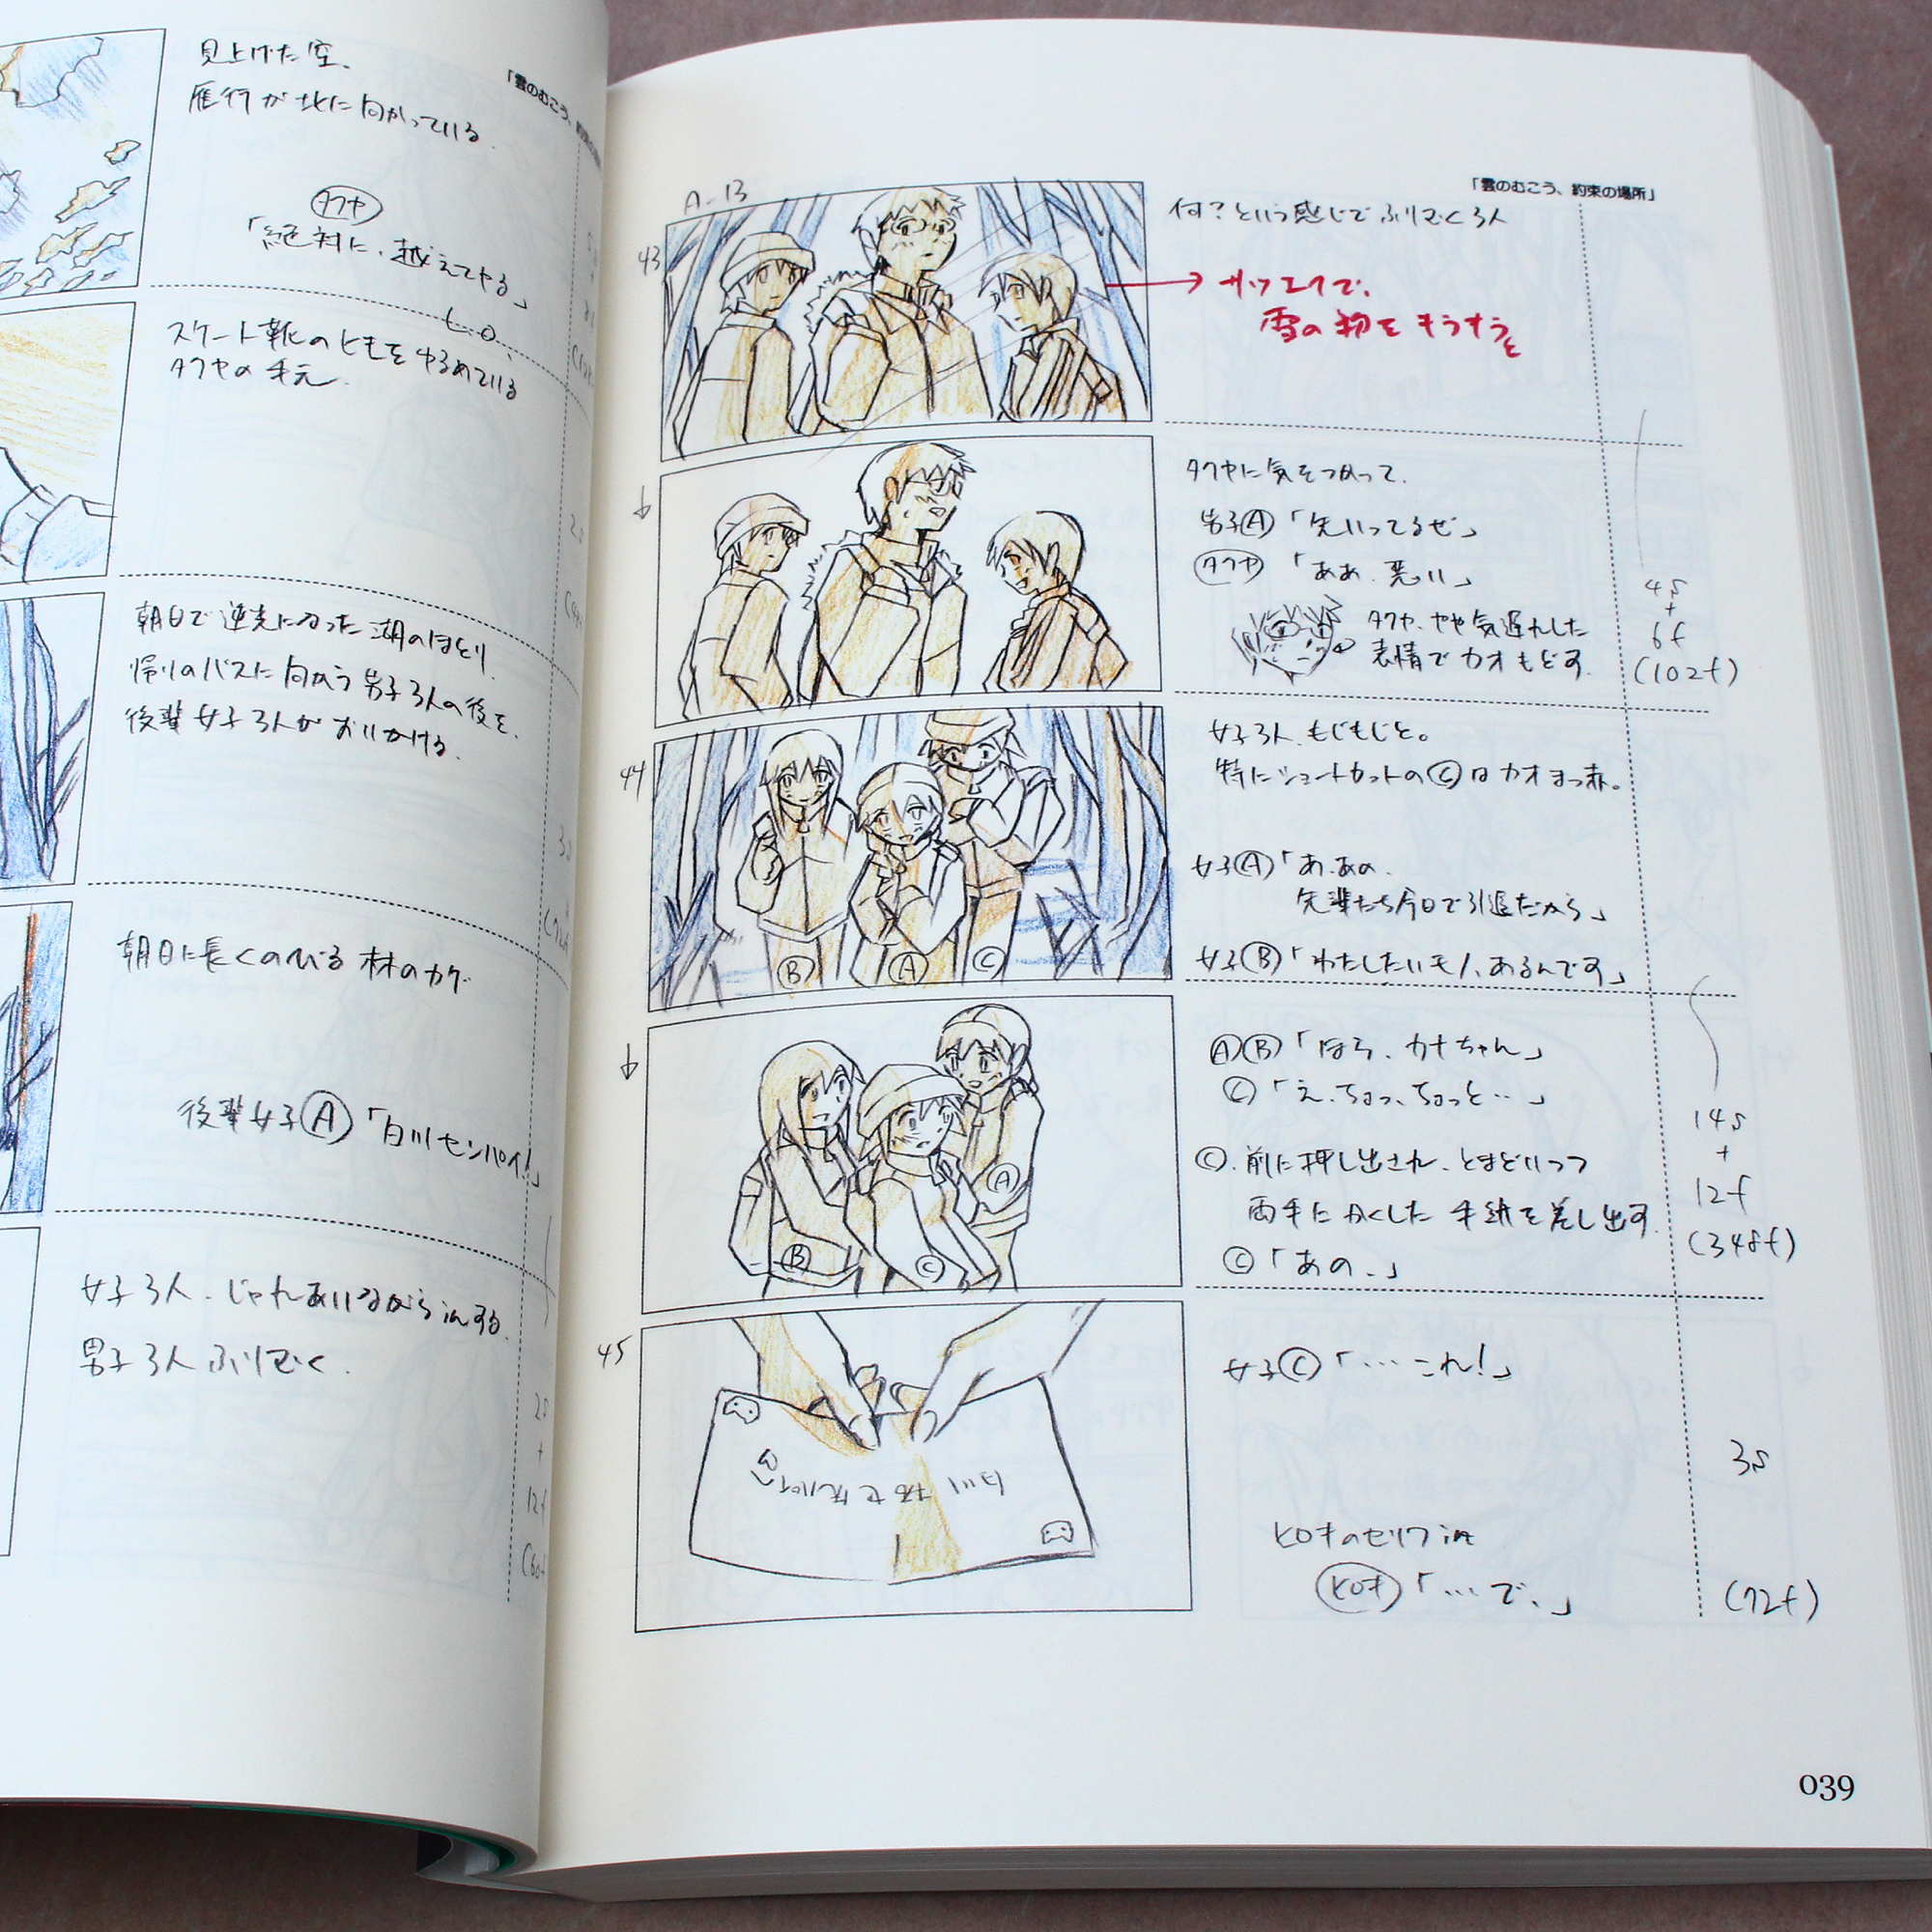 見上げた空、
雁行が北に向かっている.
タクヤ
「絶対に、越えてやる」
t.o.
スケート靴のヒモをゆるめている
タクヤの手元.
朝日で逆光になった湖のほとり.
帰りのバスに向かう男子3人の後を、
後輩女子3人がおいかける.
朝日に長くのびる林のカゲ
後輩女子Ⓐ「白川センパイ!」
女子3人、じゃれあいながらinする.
男子3人ふりむく.
2s
+
12f
(60f
「雲のむこう、約束の場所」
A-13
43
何?という感じでふりむく3人
サツエイで、
雪の粉をキラキラと
タクヤに気をつかって、
男子Ⓐ「先いってるぜ」
タクヤ「ああ、悪い」
タクヤ、やや気遅れした
表情でカオもどす.
4s
+
6f
(102f)
44
女子3人、もじもじと。
特にショートカットのⒸはカオまっ赤。
女子Ⓐ「あ、あの、
先輩たち今日で引退だから」
女子Ⓑ「わたしたいモノ、あるんです」
Ⓑ Ⓐ Ⓒ
ⒶⒷ「ほら、カナちゃん」
Ⓒ「え、ちょっ、ちょっと‥」
Ⓒ、前に押し出され、とまどいつつ
両手にかくした手紙を差し出す.
Ⓒ「あの、」
Ⓑ Ⓒ Ⓐ
14s
+
12f
(348f)
45
女子Ⓒ「…これ!」
白川拓也センパイへ
3s
ヒロキのセリフin
ヒロキ「…で、」
(72f)
039